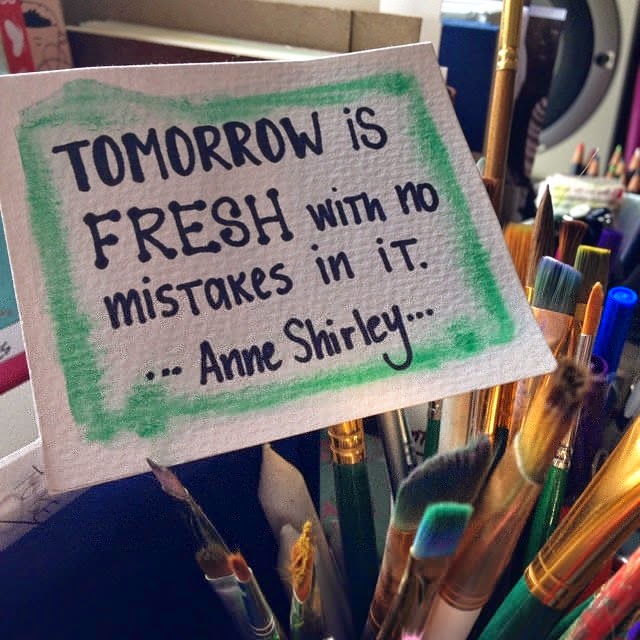 TOMORROW iS
FRESH WiTh no
misTaKes in iT.
... Anne Shirley...